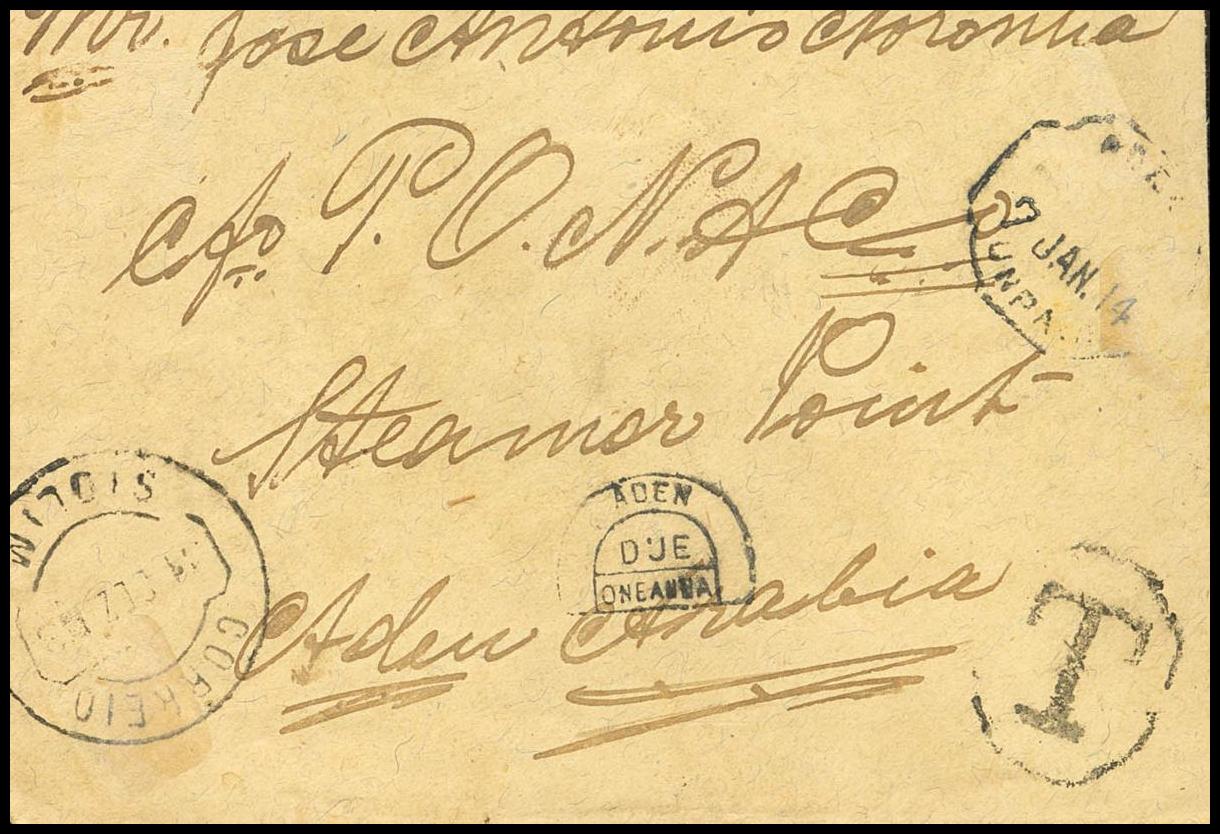 Mr. José Antonio Noronha
C/o P. O. N. A C
23 JAN. 14
UNPA
Steamer Point
ADEN
DUE
ONE ANNA
SIOLIM
CORREIO
Aden Arabia
T